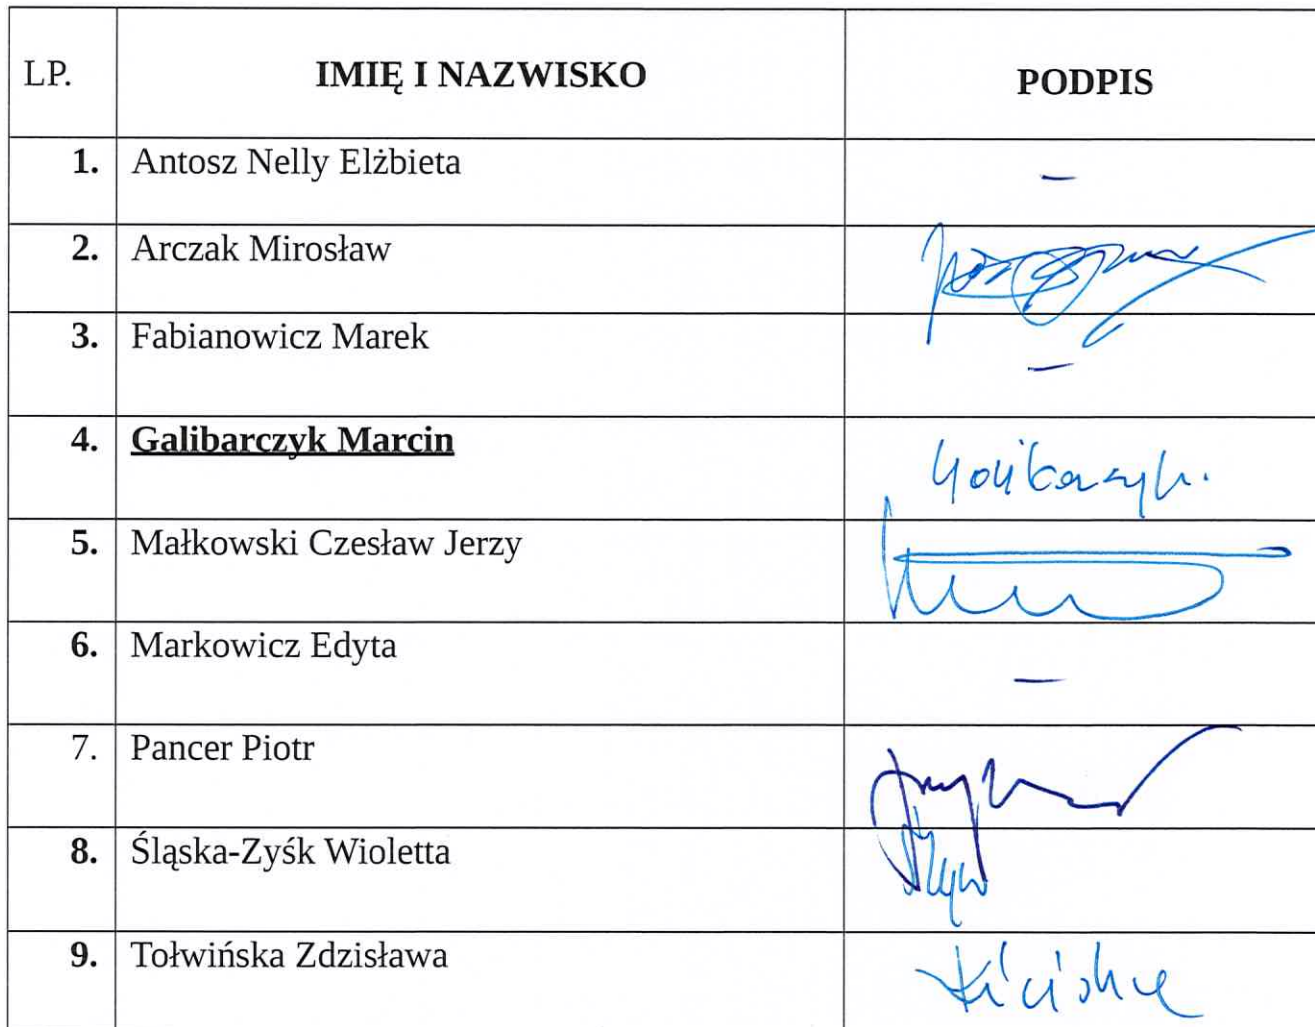 LP. IMIĘ I NAZWISKO PODPIS
1. Antosz Nelly Elżbieta –
2. Arczak Mirosław
3. Fabianowicz Marek –
4. Galibarczyk Marcin
5. Małkowski Czesław Jerzy
6. Markowicz Edyta –
7. Pancer Piotr
8. Śląska-Zyśk Wioletta
9. Tołwińska Zdzisława